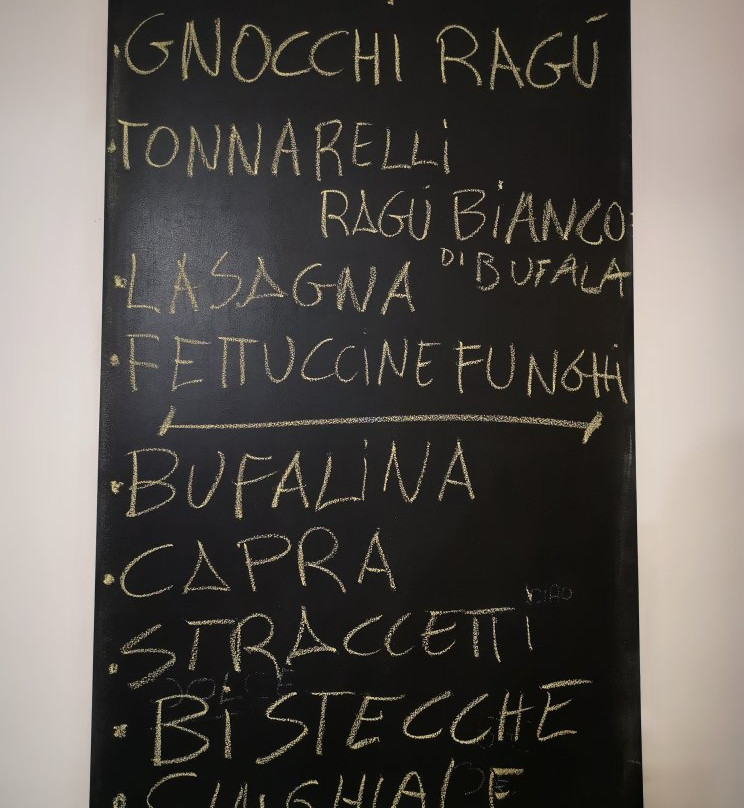 GNOCCHI RAGÚ
TONNARELLI
RAGÚ BIANCO
DI BUFALA
LASAGNA
FETTUCCINE FUNGHI
BUFALINA
CAPRA
CIAO
STRACCETTI
DOLCE
BISTECCHE
CINGHIALE